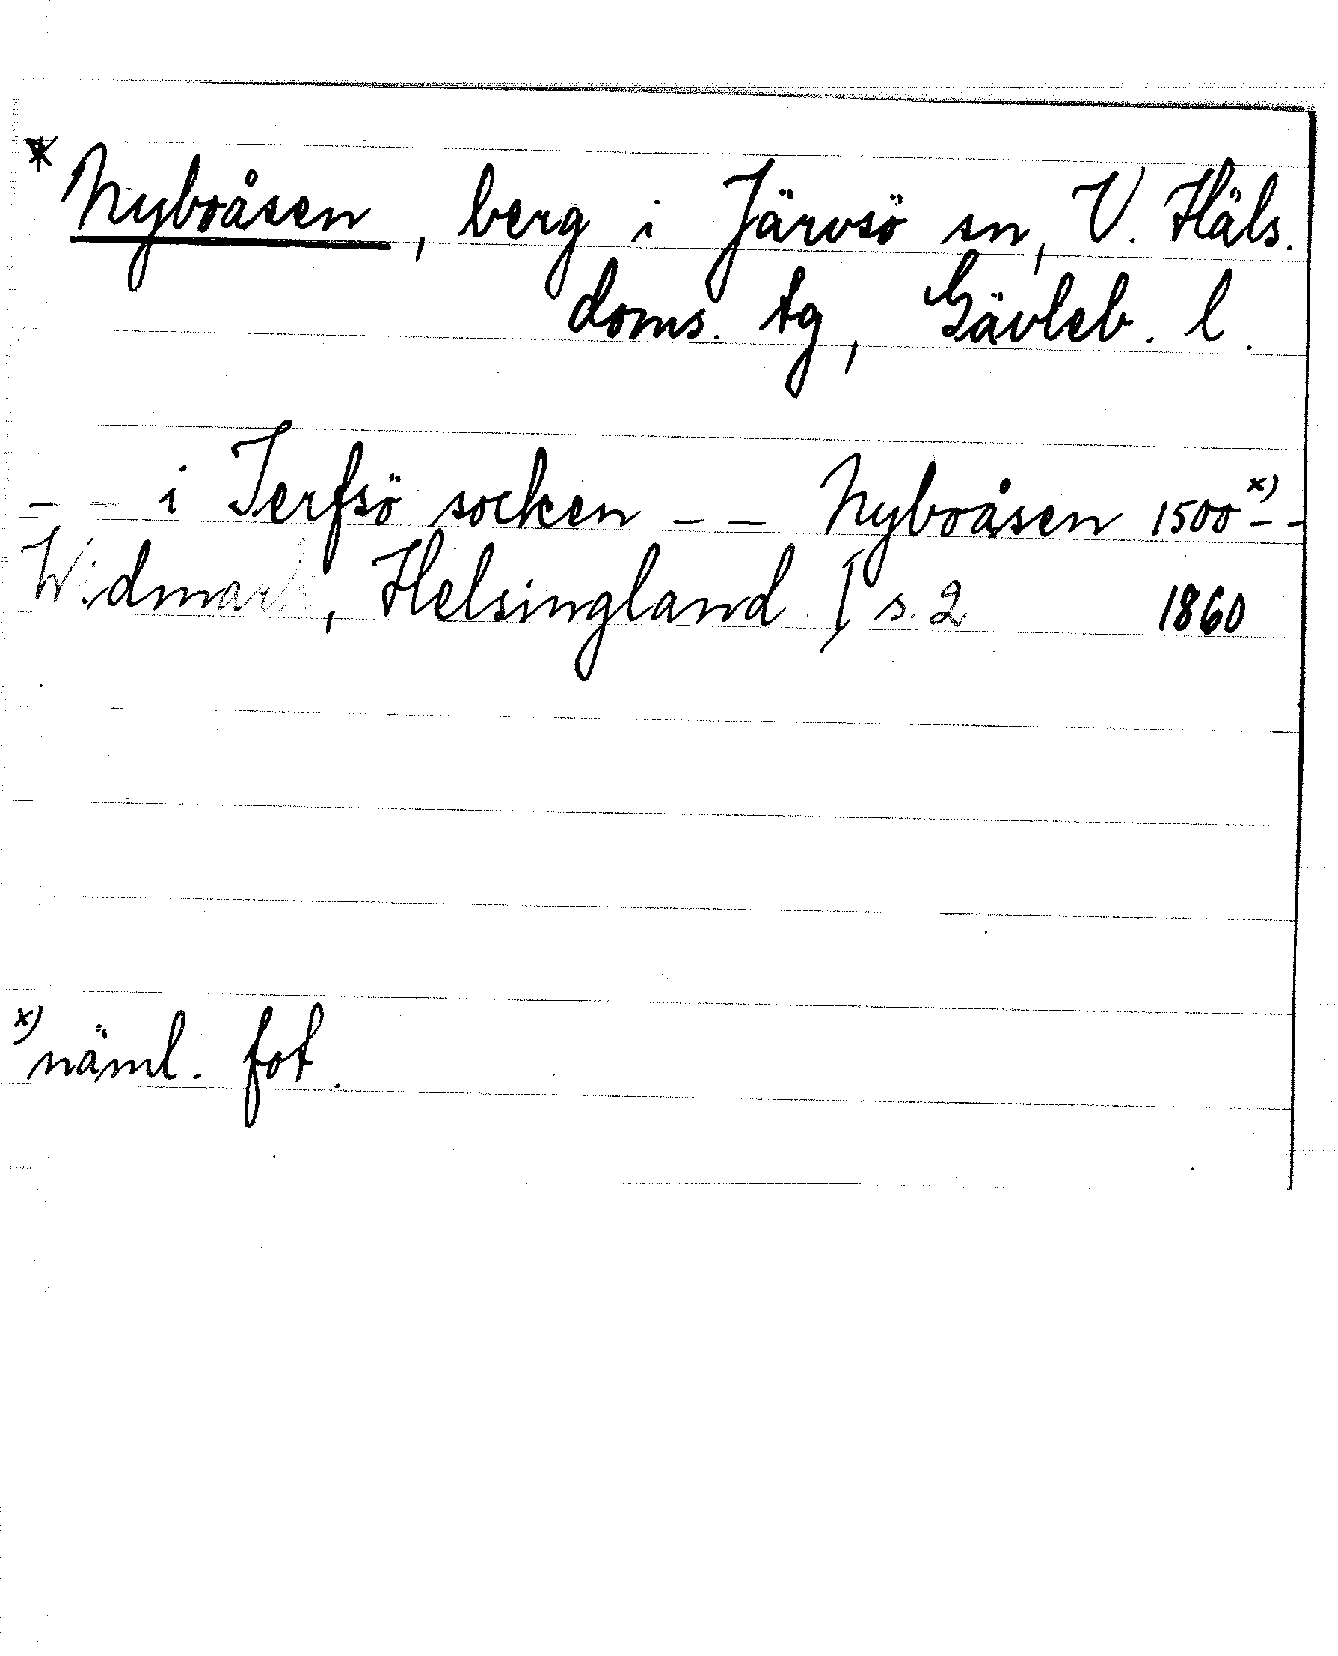 * Nyboåsen, berg i Järvsö sn, V. Häls.
doms. tg, Gävleb. l.
– – i Jerfsö socken – – Nyboåsen 1500 x) – –
Widmark, Helsingland I s. 2 1860
x) näml. fot.